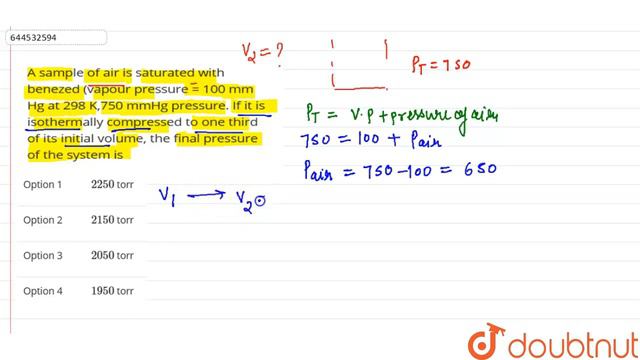 644532594
A sample of air is saturated with
benezed (vapour pressure = 100 mm
Hg at 298 K,750 mmHg pressure. If it is
isothermally compressed to one third
of its initial volume, the final pressure
of the system is
Option 1 2250 torr
Option 2 2150 torr
Option 3 2050 torr
Option 4 1950 torr
V2 = ?
PT = 750
PT = V.P + pressure of air
750 = 100 + Pair
Pair = 750 - 100 = 650
V1 → V2
doubtnut